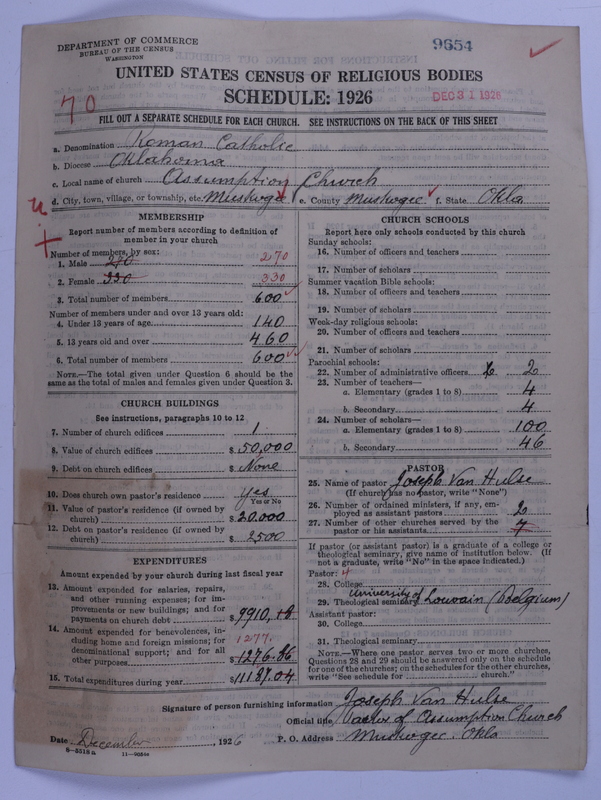 DEPARTMENT OF COMMERCE
BUREAU OF THE CENSUS
WASHINGTON
9654
UNITED STATES CENSUS OF RELIGIOUS BODIES
SCHEDULE: 1926
DEC 31 1926
70
FILL OUT A SEPARATE SCHEDULE FOR EACH CHURCH. SEE INSTRUCTIONS ON THE BACK OF THIS SHEET
a. Denomination Roman Catholic
b. Diocese Oklahoma
c. Local name of church Assumption Church
d. City, town, village, or township, etc. Muskogee e. County Muskogee f. State Okla
MEMBERSHIP
Report number of members according to definition of
member in your church
Number of members, by sex:
1. Male 270 270
2. Female 330 330
3. Total number of members 600
Number of members under and over 13 years old:
4. Under 13 years of age 140
5. 13 years old and over 460
6. Total number of members 600
NOTE.—The total given under Question 6 should be the
same as the total of males and females given under Question 3.
CHURCH BUILDINGS
See instructions, paragraphs 10 to 12
7. Number of church edifices 1
8. Value of church edifices $ 50,000
9. Debt on church edifices $ None
10. Does church own pastor's residence yes
Yes or No
11. Value of pastor's residence (if owned by
church) $ 20.000
12. Debt on pastor's residence (if owned by
church) $ 2500
EXPENDITURES
Amount expended by your church during last fiscal year
13. Amount expended for salaries, repairs,
and other running expenses; for im-
provements or new buildings; and for
payments on church debt $ 9910,18
14. Amount expended for benevolences, in-
cluding home and foreign missions; for
denominational support; and for all
other purposes 1277. $ 1276.86
15. Total expenditures during year $ 11187.04
CHURCH SCHOOLS
Report here only schools conducted by this church
Sunday schools:
16. Number of officers and teachers
17. Number of scholars
Summer vacation Bible schools:
18. Number of officers and teachers
19. Number of scholars
Week-day religious schools:
20. Number of officers and teachers
21. Number of scholars
Parochial schools:
22. Number of administrative officers 2
23. Number of teachers—
a. Elementary (grades 1 to 8) 4
b. Secondary 4
24. Number of scholars—
a. Elementary (grades 1 to 8) 100
b. Secondary 46
PASTOR
25. Name of pastor Joseph Van Hulse
(If church has no pastor, write "None")
26. Number of ordained ministers, if any, em-
ployed as assistant pastors 2
27. Number of other churches served by the
pastor or his assistants
If pastor (or assistant pastor) is a graduate of a college or
theological seminary, give name of institution below. (If
not a graduate, write "No" in the space indicated.)
Pastor: 4
28. College
29. Theological seminary University of Louvain (Belgium)
Assistant pastor:
30. College
31. Theological seminary
NOTE.—Where one pastor serves two or more churches,
Questions 28 and 29 should be answered only on the schedule
for one of the churches; on the schedules for the other churches,
write "See schedule for church."
Signature of person furnishing information Joseph Van Hulse
Official title Pastor of Assumption Church
Date December, 1926 P. O. Address Muskogee. Okla
8-5518a 11-9654a